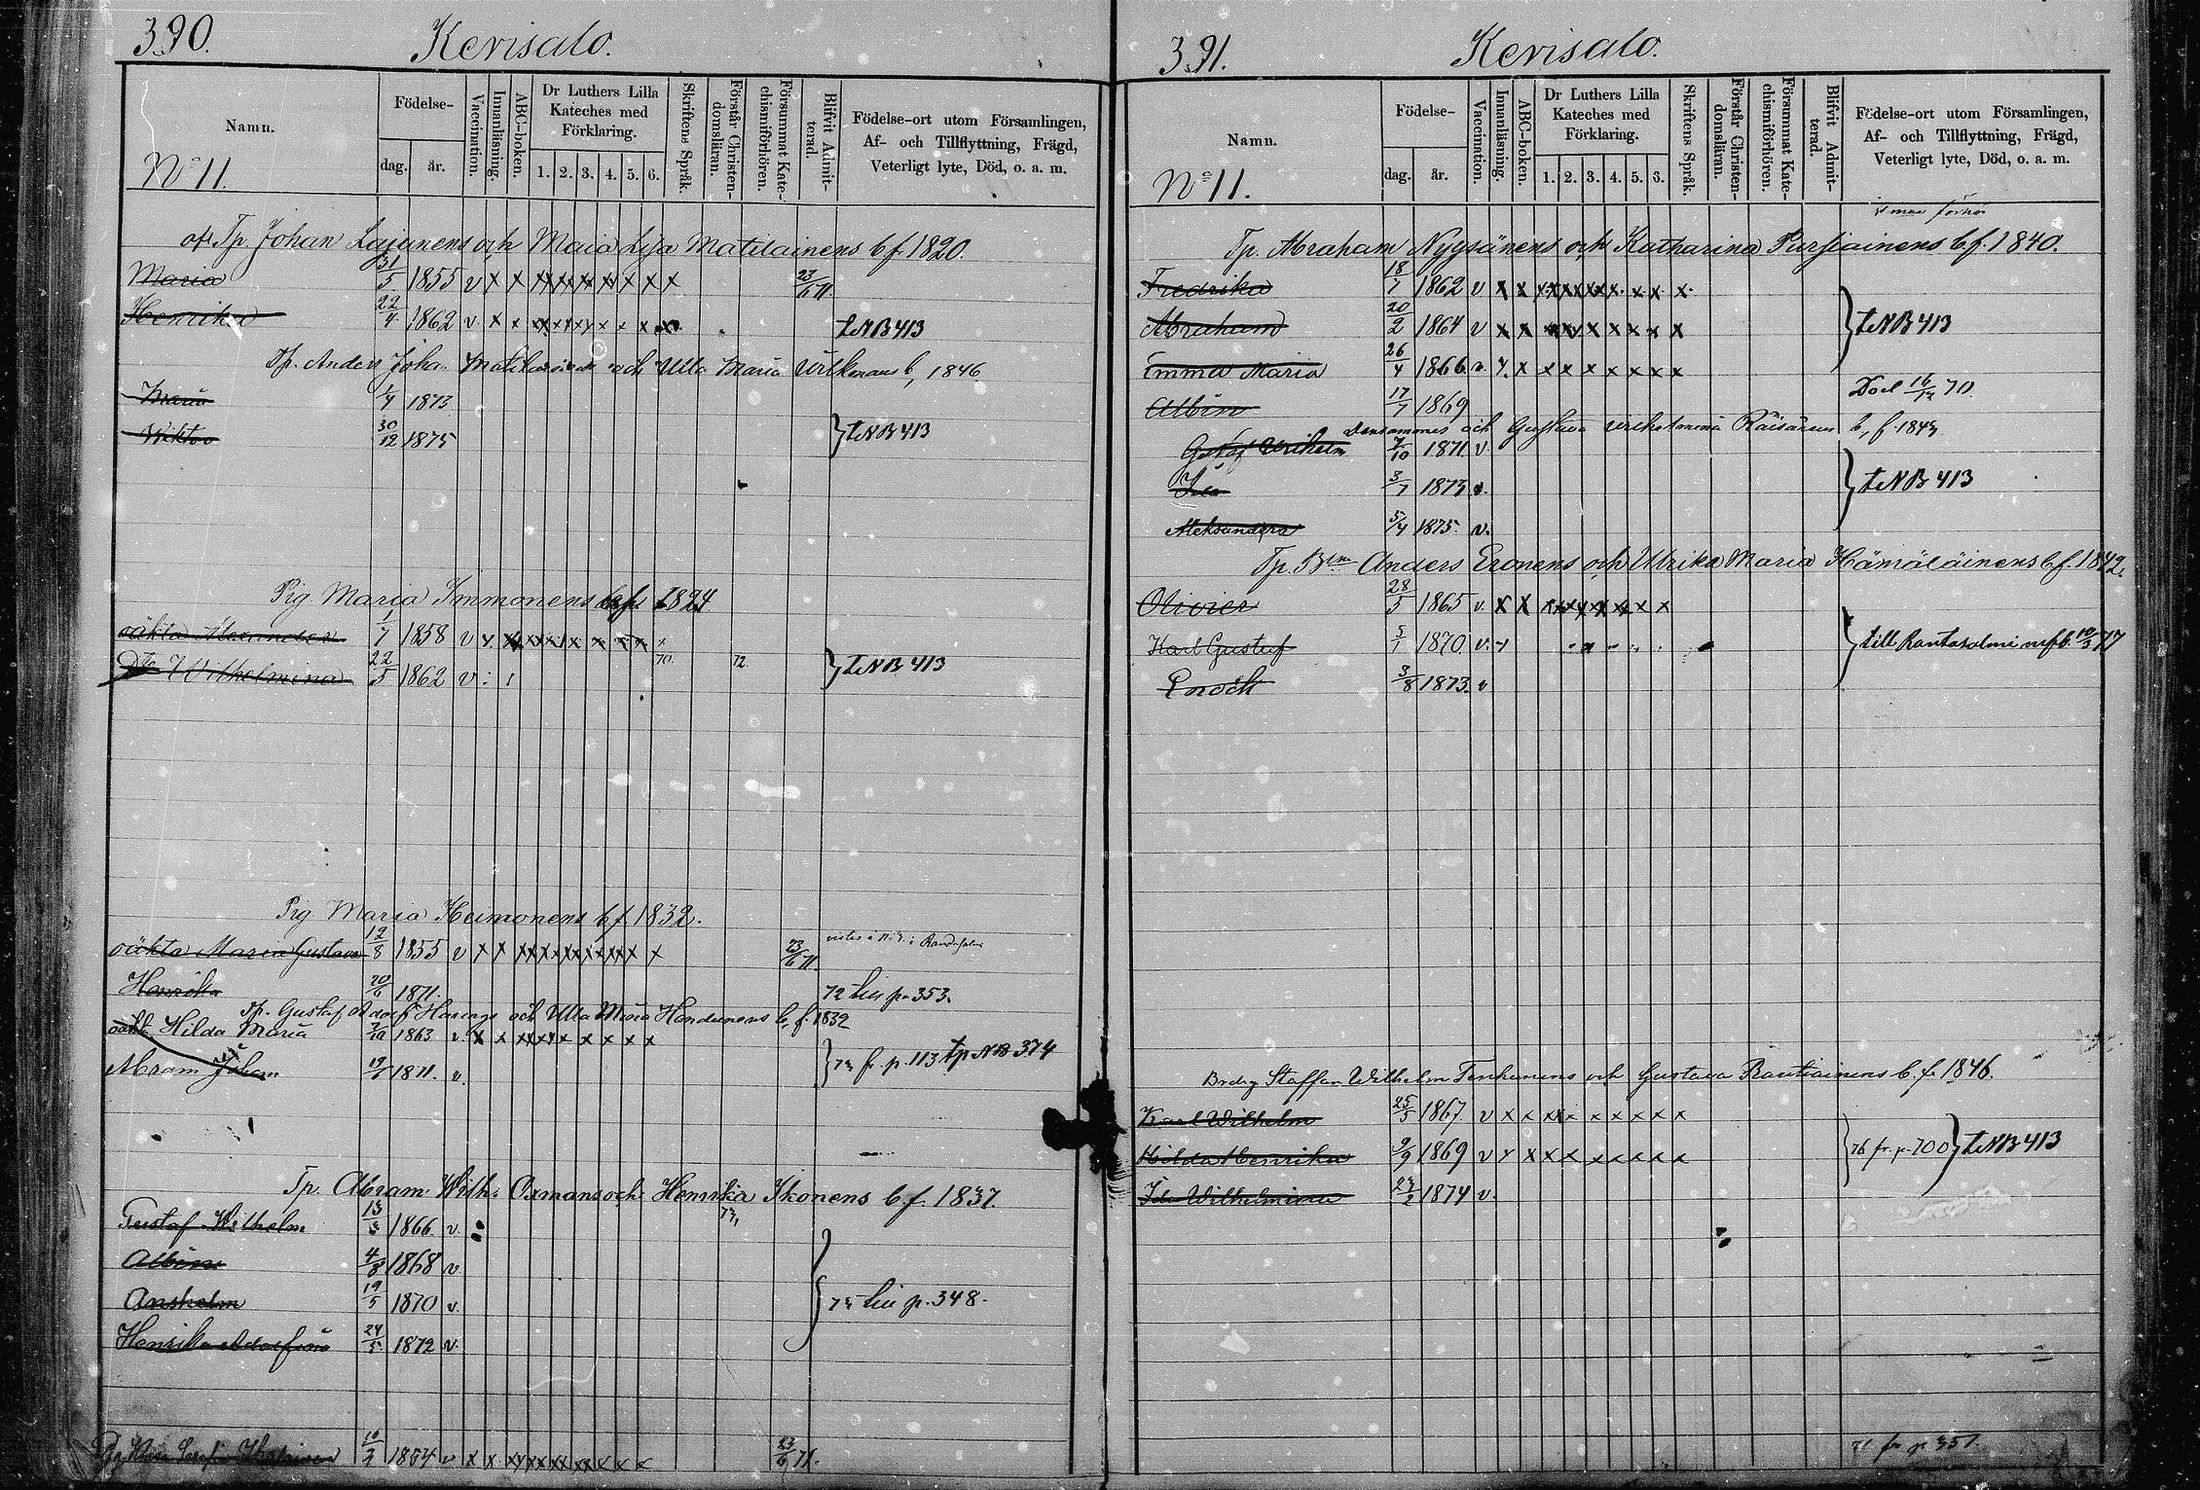 390. Kerisalo.
Namn.
No 11.
Födelse-
dag.
år.
Vaccination.
Innanläsning.
ABC-boken.
Dr Luthers Lilla Kateches med Förklaring.
1. 2. 3. 4. 5. 6.
Skriftens Språk.
Förstår Christen-domsläran.
Försummat Kate-chismiförhören.
Blifvit Admit-terad.
Födelse-ort utom Församlingen,
Af- och Tillflyttning, Frägd,
Veterligt lyte, Död, o. a. m.
Tp. Johan Lajunens och Maia Lisa Matilainens b f. 1820.
Maria 31/5 1855 v x x x x x x x x x x 23/6 71.
Henrika 22/4 1862 v x x x x x x x x x x t NB 413
Tp. Anders Joha. och Ulla Maria b, 1846
Maria 1/4 1873
Viktor 30/12 1875 } t NB 413
Pig. Maria Immonens 1824
oäkta Alexander 1/7 1858 v x x x x x x x x x
Dto Wilhelmina 22/5 1862 v 70. 72 } t NB 413
Pig. Maria Heimonens b f. 1832.
oäkta Maria Gustava 12/8 1855 v x x x x x x x x x x 23/6 71.
Henrika 20/6 1871. 72 p. 353.
Tp. Gustaf Adolf och Ulla Maria b, f. 1832
oäkta Hilda Maria 1863 v. x x x x x x x x x
Abram Johan 1871. v. } 73 fr p. 113 tp NB 374
Tp. Abram Wilh. Oxmans och Henrika Ikonens b f. 1837.
Gustaf Wilhelm 13/3 1866 v. 73,
Albin 4/8 1868 v
Anshelm 19/5 1870 v. } p. 348.
Henrika Adolfina 24/5 1872 v.
1854 v x x x x x x x x x x 23/6 71.
391. Kerisalo.
Namn.
No 11.
Födelse-
dag.
år.
Vaccination.
Innanläsning.
ABC-boken.
Dr Luthers Lilla Kateches med Förklaring.
1. 2. 3. 4. 5. 3.
Skriftens Språk.
Förstår Christen-domsläran.
Försummat Kate-chismiförhören.
Blifvit Admit-terad.
Födelse-ort utom Församlingen,
Af- och Tillflyttning, Frägd,
Veterligt lyte, Död, o. a. m.
Tp. Abraham Nyyssönens och Katharina Pursiainens b f. 1840.
Fredrika 18/7 1862 v x x x x x x x x x x
Abraham 20/2 1864 v x x x x x x x x x } t NB 413
Emma Maria 26/4 1866 v. x x x x x x x x x
Albin 17/7 1869 Död 16/12 70.
Densammes och Gustava Wilhelmina Räisänens b, f. 1843
Gustaf Wilhelm 7/10 1871 v.
Ida 3/7 1873 v. } t NB 413
Aleksandra 5/4 1875 v.
Tp. Bdn Anders Eronens och Ulrika Maria Hämäläinens b f. 1842.
Olivier 28/5 1865 v. x x x x x x x x x
Karl Gustaf 5/1 1870. v. } till Rantasalmi mfb 10/3 77
Enock 3/8 1873. v
Staffan Wilhelm Tenhunens och Gustava Rautiainens b. f. 1846.
Karl Wilhelm 25/5 1867. v x x x x x x x x x
Hilda Henrika 9/9 1869 v x x x x x x x x x } 76 fr. p. 700 } t NB 413
Ida Wilhelmina 23/2 1874 v.
71 fr p 351.